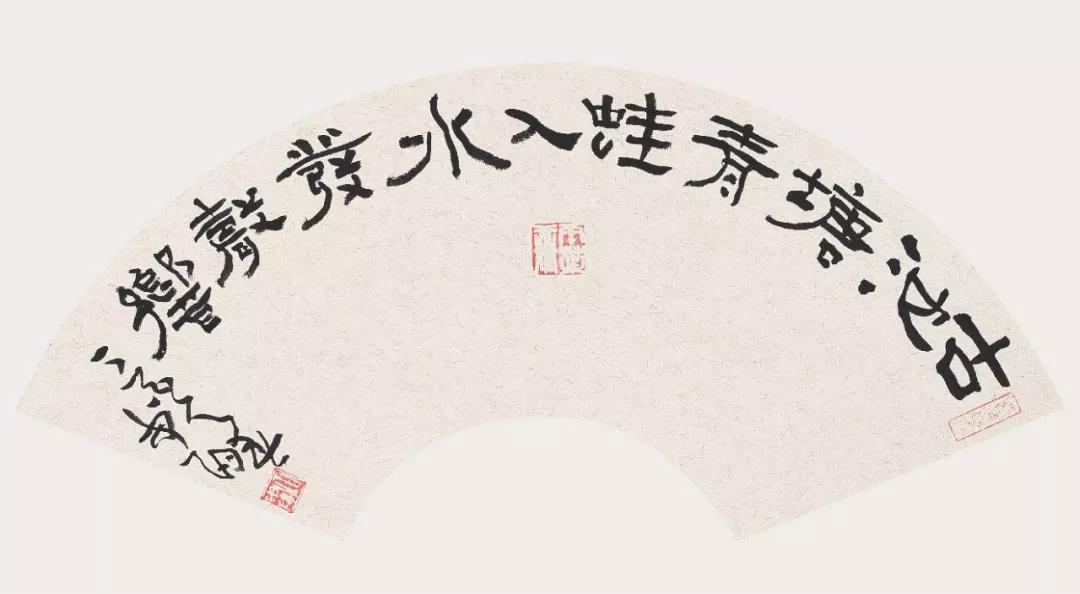 古池塘青蛙入水發聲響